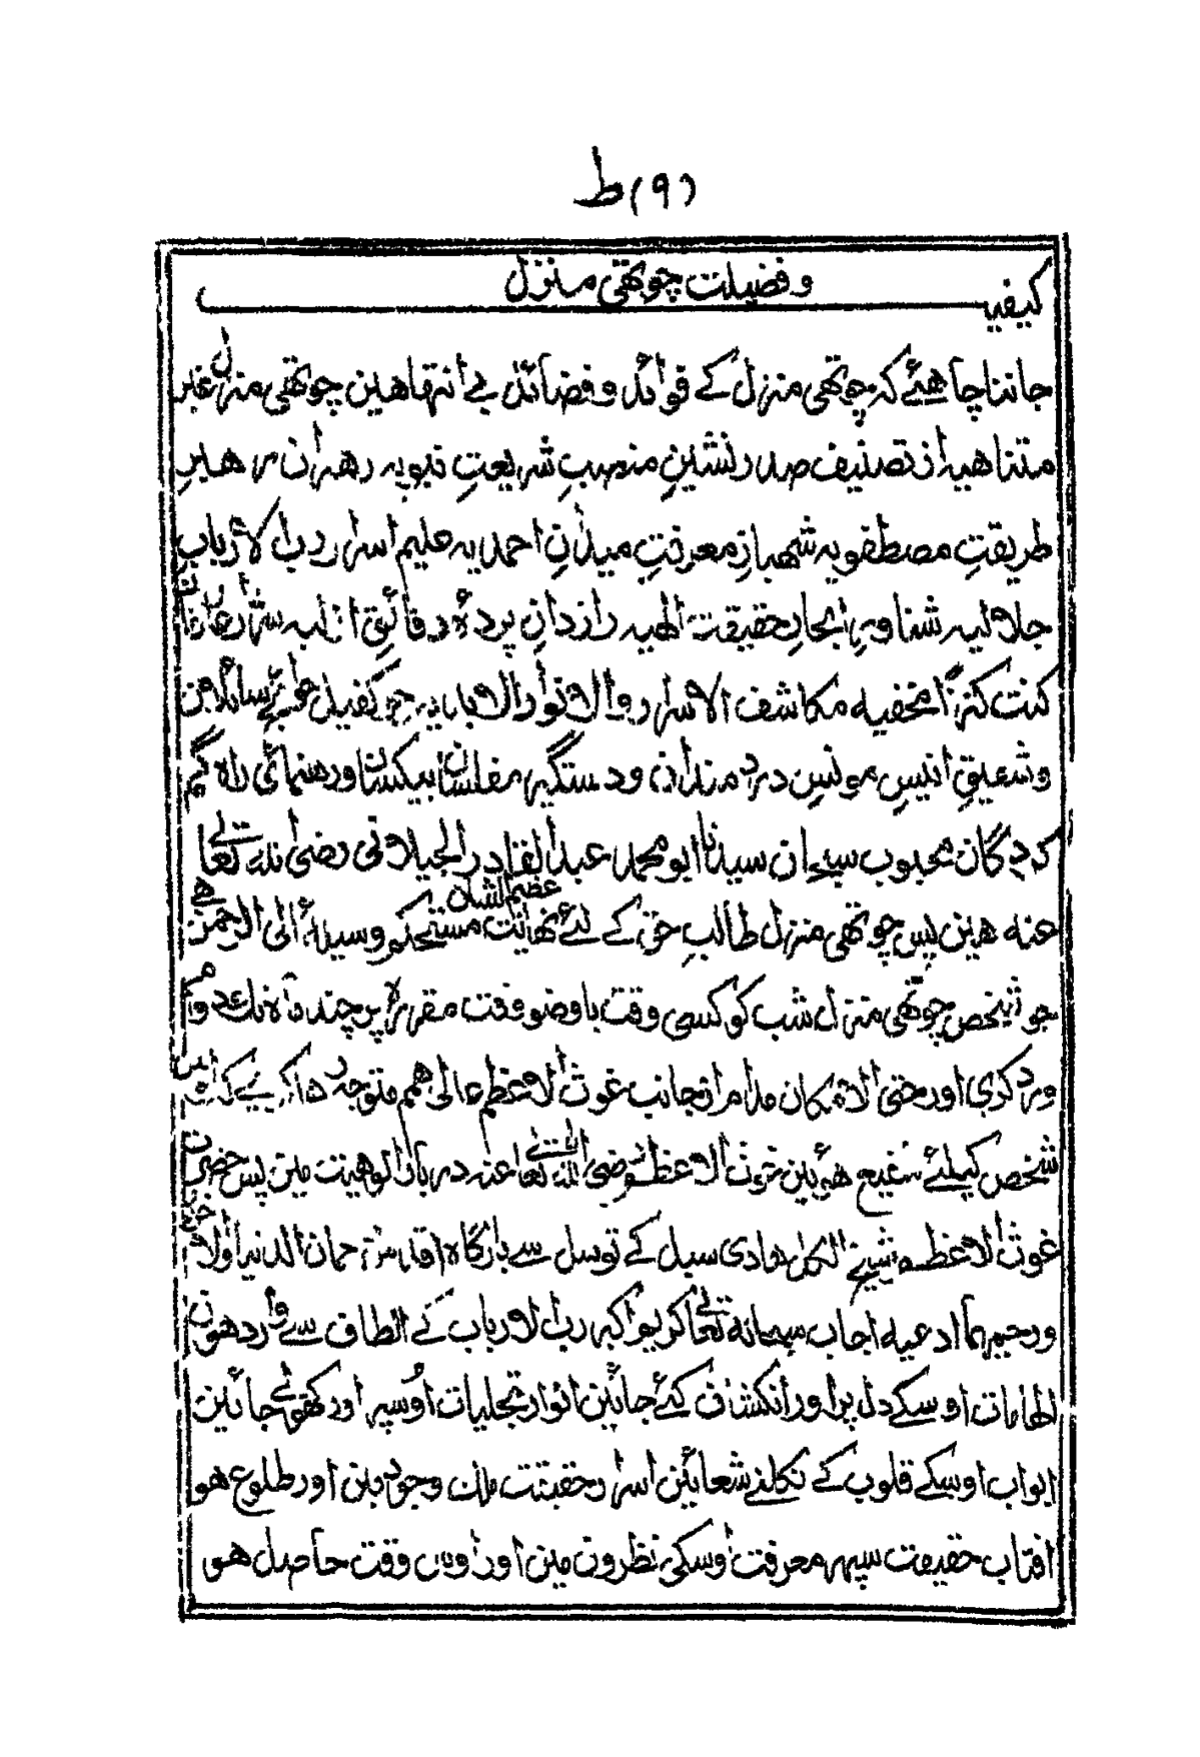 (٩) ط
کیفیت و فضیلت چوتھی منزل
جاننا چاھئے کہ چوتھی منزل کے فوائد و فضائل بے انتہا ھین چوتھی منزل غیر
متناھیہ از تصنیف صدر نشینِ منصبِ شریعتِ نبویہ رھبرِ
طریقتِ مصطفویہ شھبازِ معرفتِ میدانِ احمدیہ علیم اسرار رب الارباب
جلالیہ شناورِ ابحارِ حقیقت الھیہ رازدانِ پردۂ دقائقِ
کنت کنزًا مخفیہ مکاشف الاسرار و الانوار جو کفیل حوائج سائلان
و شفیقِ انیسِ مونسِ دردمندان و دستگیر مفلسان بیکسان و رھنمای راہ گم
کردگان محبوب سبحان سیدنا ابو محمد عبد القادر الجیلانی رضی اللہ تعالےٰ
عنہ ھین پس چوتھی منزل طالبِ حق کے لئے نھائت مستحکم وسیلۂ عظیم الشان الی الرحمن ھے
جو شخص چوتھی منزل شب کو کسی وقت با وضو وقت مقررہ پر چند ماہ تك
ورد کری اور حتی الامکان مدام از جانب غوث الاعظم عالی ھمم متوجہ رھا کرے کہ اس
شخص کیلئے شفیع ھوئین غوث الاعظم رضی اللہ تعالےٰ عنہ دربار الوھیت مین پس حضرت
غوث الاعظم شیخ الکل ھادی سبل کے توسل سے بارگاہ اقدس رحمان الدنیا والا
ورحیمہما ادعیہ اجاب سبحانہ تعالےٰ کریو اکبر رب الارباب کے الطاف سے وارد ھون
الھامات اوسکے دل پر اور انکشاف کئے جائین انوار تجلیات اُوسپر اور کھولے جائین
ابواب اوسکے قلوب کے نکلنے شعائین اسرار حقیقت وجود مین اور طلوع ھو
افتاب حقیقت سپہر معرفت اوسکی نظرون مین اور اوس وقت حاصل ھو